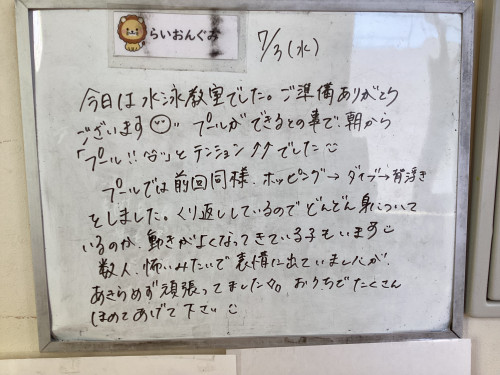 らいおんぐみ
7/3(水)
今日は水泳教室でした。ご準備ありがとう
ございます プールができるとの事で朝から
「プール!! 」とテンション↑↑でした
プールでは前回同様、ホッピング→ダイブ→背浮き
をしました。くり返ししているのでどんどん身について
いるのか、動きがよくなってきている子もいます
数人、怖いみたいで表情に出ていましたが、
あきらめず頑張ってました。おうちでたくさん
ほめてあげて下さい